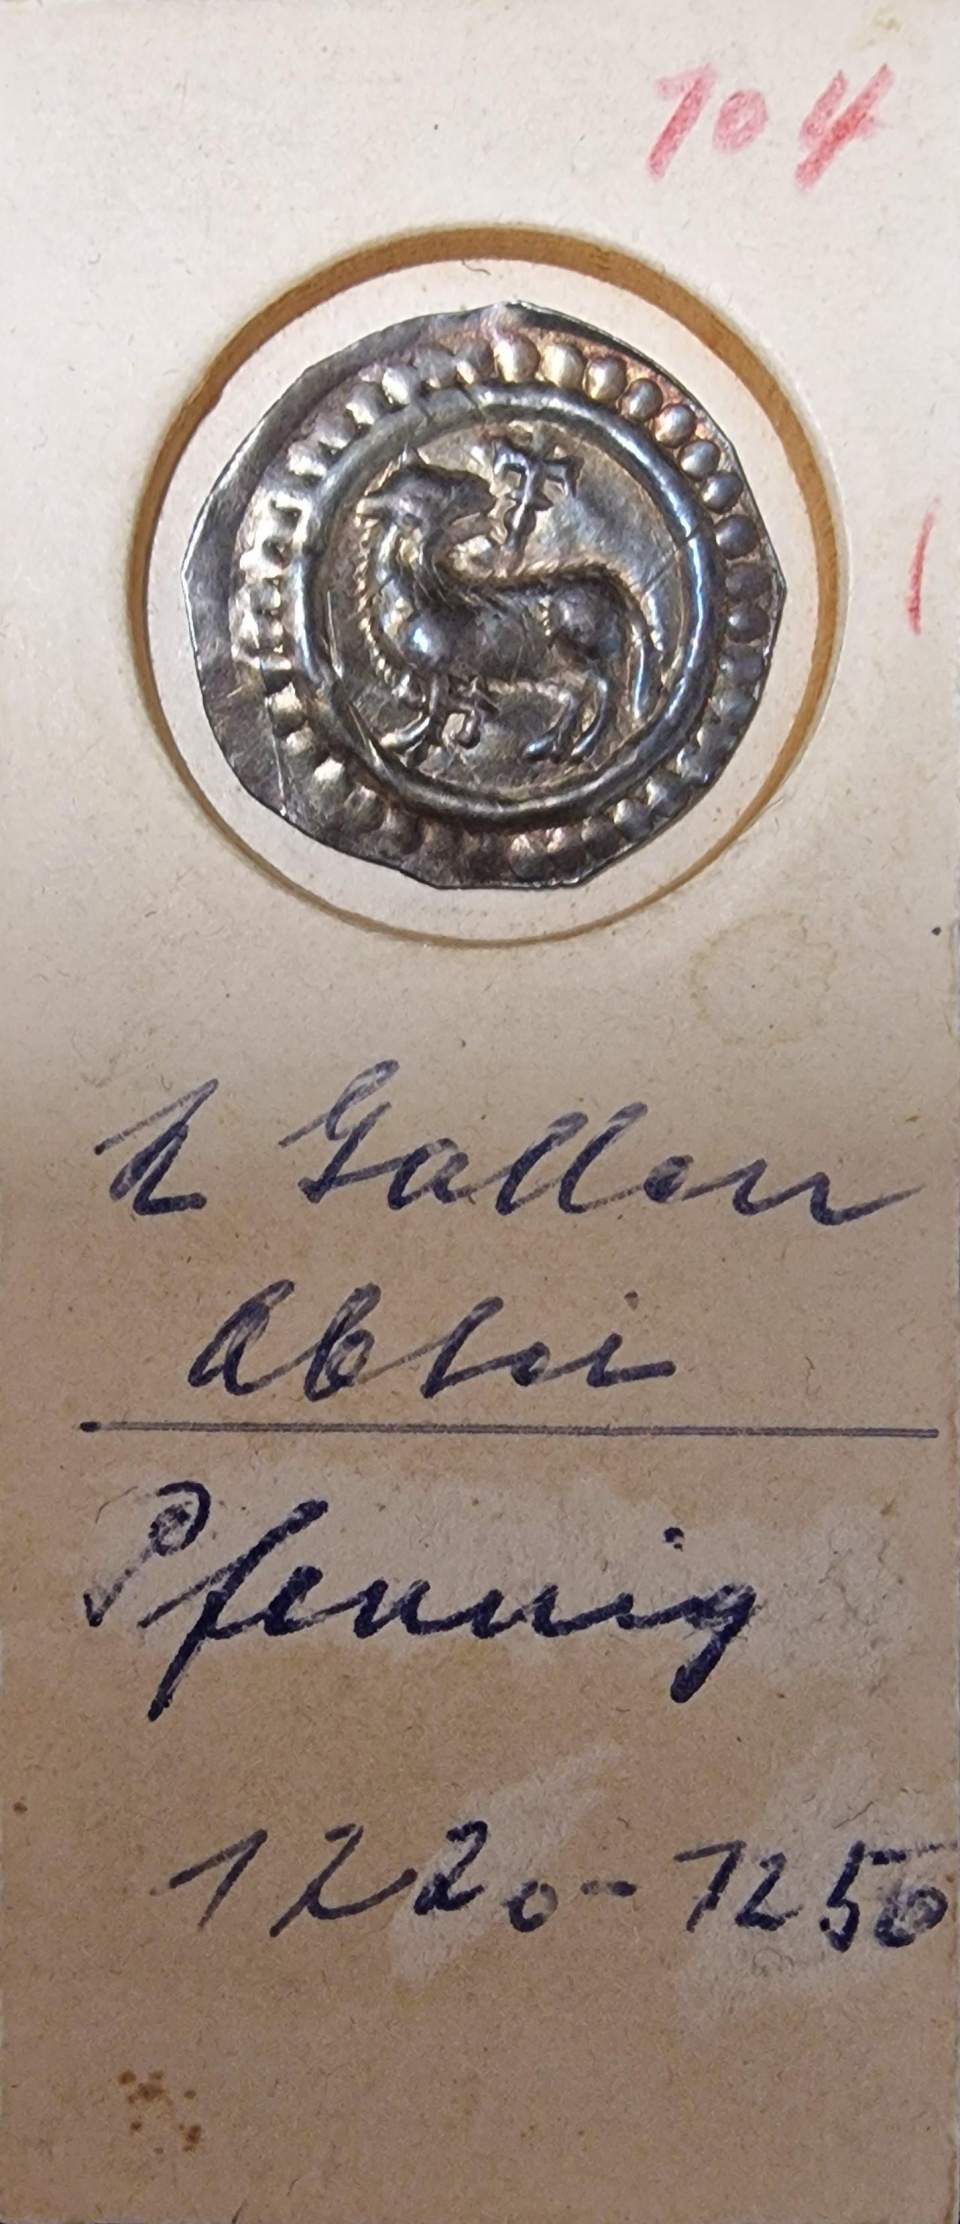 104
St Gallen
Abtei
Pfennig
1220-1250